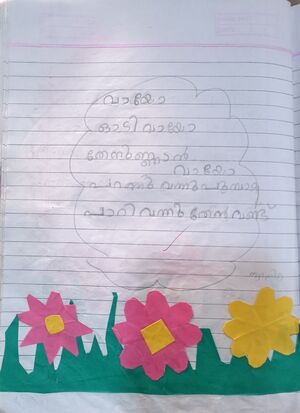 വായോ
ഓടി വായോ
തേനുണ്ണാൻ
വായോ
പറന്നു വന്നു
പാറി വന്നു തേൻ വണ്ട്